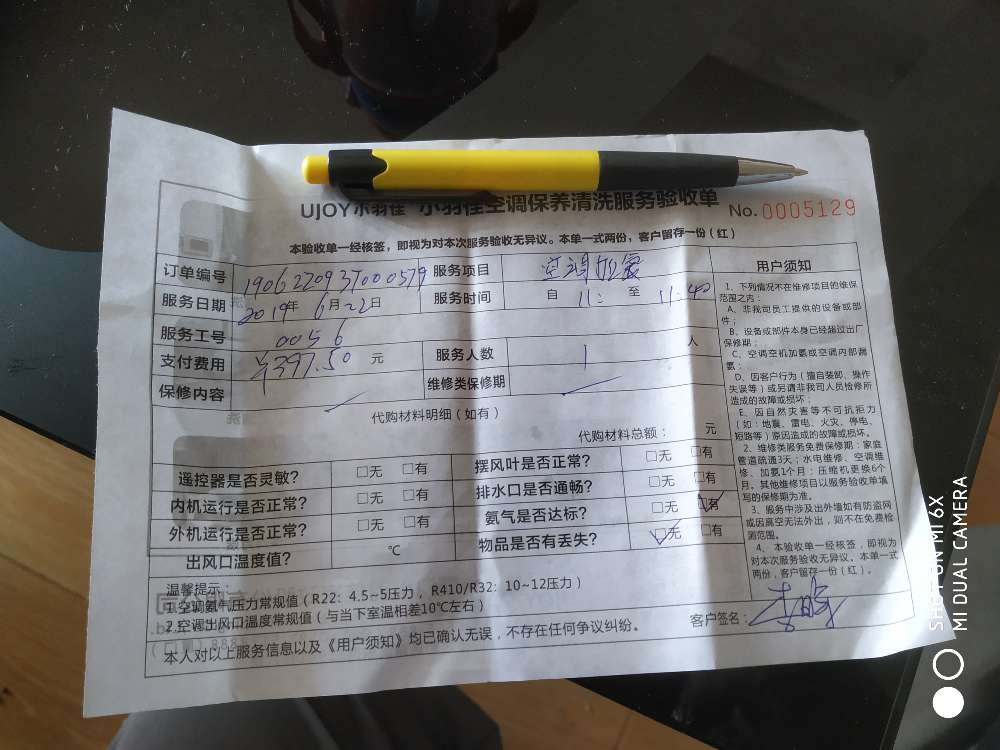 UJOY小羽佳 小羽佳空调保养清洗服务验收单
No.0005129
本验收单一经核签，即视为对本次服务验收无异议。本单一式两份，客户留存一份（红）
订单编号 服务项目
服务日期 2019年6月22日 服务时间 自 11: 至 11:40
服务工号 0056
支付费用 ¥397.50 元 服务人数 1 人
保修内容 维修类保修期
代购材料明细（如有）
代购材料总额： 元
遥控器是否灵敏？ □无 □有 摆风叶是否正常？ □无 □有
内机运行是否正常？ □无 □有 排水口是否通畅？ □无 □有
外机运行是否正常？ □无 □有 氨气是否达标？ □无 □有
出风口温度值？ ℃ 物品是否有丢失？ □无 □有
温馨提示：
1.空调氨气压力常规值（R22：4.5~5压力，R410/R32：10~12压力）
2.空调出风口温度常规值（与当下室温相差10℃左右）
本人对以上服务信息以及《用户须知》均已确认无误，不存在任何争议纠纷。
客户签名：
用户须知
1、下列情况不在维修项目的维保
范围之内：
A、非我司员工提供的设备或部
件；
B、设备或部件本身已经超过出厂
保修期；
C、空调空机加氨或空调内部漏
氨；
D、因客户行为（擅自装卸、操作
失误等）或另请非我司人员检修所
造成的故障或损坏；
E、因自然灾害等不可抗拒力
（如：地震、雷电、火灾、停电、
短路等）原因造成的故障或损坏。
2、维修类服务免费保修期：家庭
管道疏通3天；水电维修、空调维
修、加氨1个月；压缩机更换6个
月。其他维修项目以服务验收单填
写的保修期为准。
3、服务中涉及出外墙如有防盗网
或因高空无法外出，则不在免费检
测范围。
4、本验收单一经核签，即视为
对本次服务验收无异议。本单一式
两份，客户留存一份（红）。
SHOT ON MI 6X
MI DUAL CAMERA